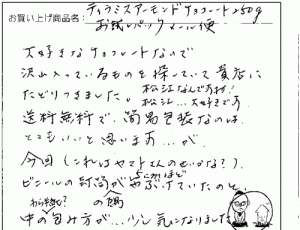 お買い上げ商品名： ティラミスアーモンドチョコレート250g
お試しパック メール便
大好きなチョコレートなので
沢山入っているものを探していて貴店に
たどりつきました。 松江なんですね！
松江…大好きです
送料無料で、簡易包装なのは
とてもいいと思います…が、
今回（これはヤマトさんのせいかな？）
ビニールの封筒がやぶけていたのと、
中の包み方が…少し気になりました